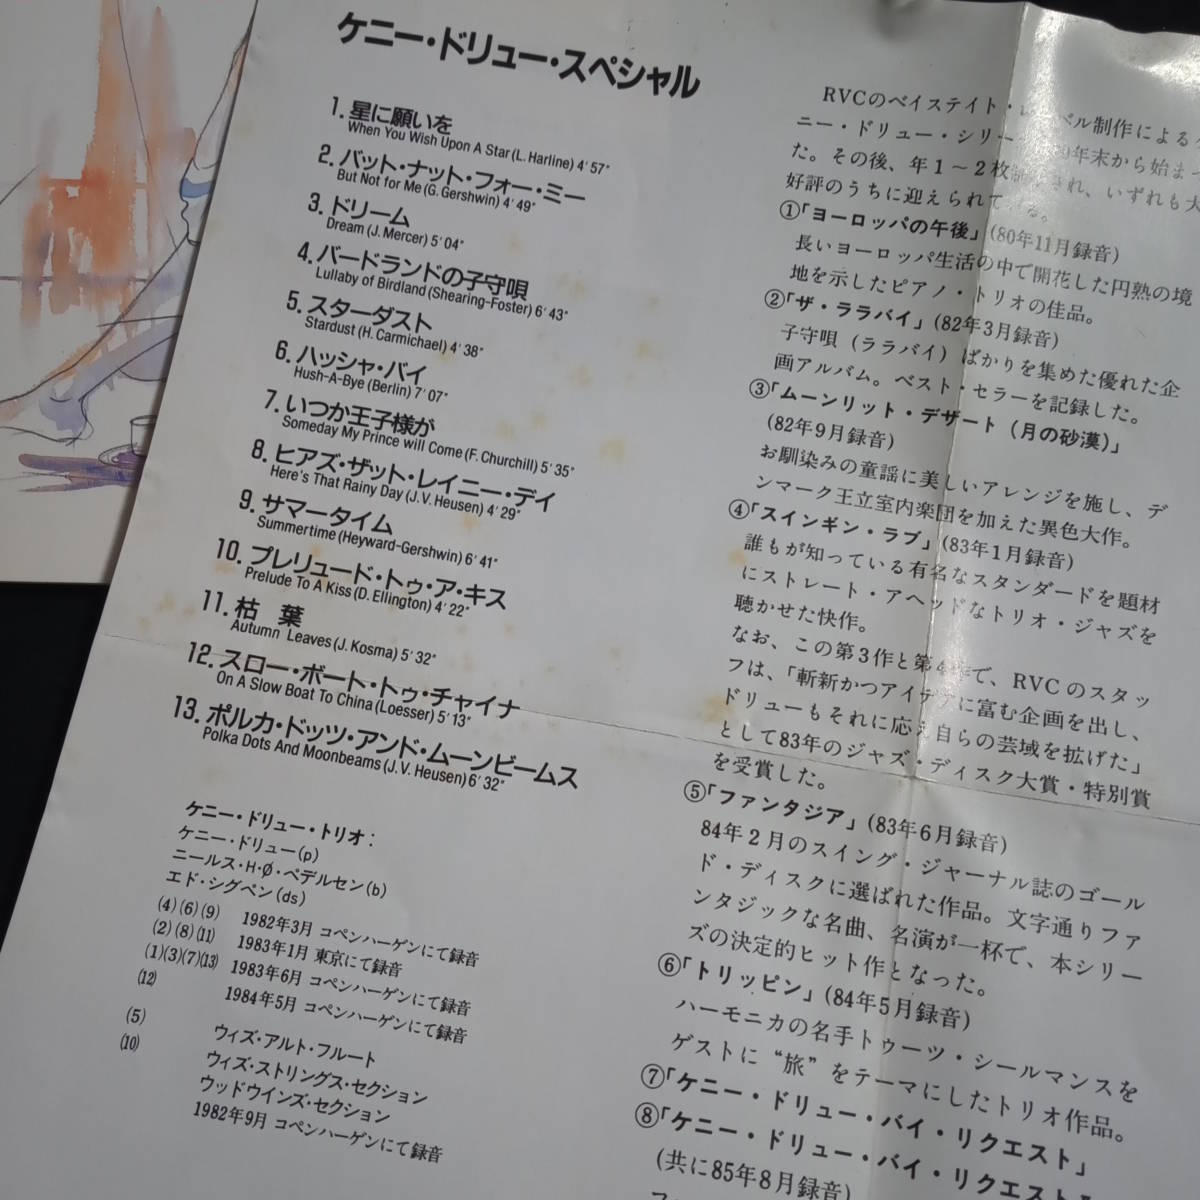 ケニー・ドリュー・スペシャル
1. 星に願いを
When You Wish Upon A Star (L. Harline) 4'57"
2. バット・ナット・フォー・ミー
But Not for Me (G. Gershwin) 4'49"
3. ドリーム
Dream (J. Mercer) 5'04"
4. バードランドの子守唄
Lullaby of Birdland (Shearing-Foster) 6'43"
5. スターダスト
Stardust (H. Carmichael) 4'38"
6. ハッシャ・バイ
Hush-A-Bye (Berlin) 7'07"
7. いつか王子様が
Someday My Prince will Come (F. Churchill) 5'35"
8. ヒアズ・ザット・レイニー・デイ
Here's That Rainy Day (J. V. Heusen) 4'29"
9. サマータイム
Summertime (Heyward-Gershwin) 6'41"
10. プレリュード・トゥ・ア・キス
Prelude To A Kiss (D. Ellington) 4'22"
11. 枯 葉
Autumn Leaves (J. Kosma) 5'32"
12. スロー・ボート・トゥ・チャイナ
On A Slow Boat To China (Loesser) 5'13"
13. ポルカ・ドッツ・アンド・ムーンビームス
Polka Dots And Moonbeams (J. V. Heusen) 6'32"
ケニー・ドリュー・トリオ：
ケニー・ドリュー (p)
ニールス・H・Ø・ペデルセン (b)
エド・シグペン (ds)
(4)(6)(9) 1982年3月 コペンハーゲンにて録音
(2)(8)(11) 1983年1月 東京にて録音
(1)(3)(7)(13) 1983年6月 コペンハーゲンにて録音
(12) 1984年5月 コペンハーゲンにて録音
(5) ウィズ・アルト・フルート
(10) ウィズ・ストリングス・セクション
ウッドウインズ・セクション
1982年9月 コペンハーゲンにて録音
RVCのベイステイト・ ベル制作による
ニー・ドリュー・シリー 年末から始まっ
た。その後、年1～2枚 され、いずれも大
好評のうちに迎えられて る。
①「ヨーロッパの午後」(80年11月録音)
長いヨーロッパ生活の中で開花した円熟の境
地を示したピアノ・トリオの佳品。
②「ザ・ララバイ」(82年3月録音)
子守唄（ララバイ）ばかりを集めた優れた企
画アルバム。ベスト・セラーを記録した。
③「ムーンリット・デザート（月の砂漠）」
(82年9月録音)
お馴染みの童謡に美しいアレンジを施し、デ
ンマーク王立室内楽団を加えた異色大作。
④「スインギン・ラブ」(83年1月録音)
誰もが知っている有名なスタンダードを題材
にストレート・アヘッドなトリオ・ジャズを
聴かせた快作。
なお、この第3作と第4作で、RVCのスタッ
フは、「斬新かつアイデアに富む企画を出し、
ドリューもそれに応え自らの芸域を拡げた」
として83年のジャズ・ディスク大賞・特別賞
を受賞した。
⑤「ファンタジア」(83年6月録音)
84年2月のスイング・ジャーナル誌のゴール
ド・ディスクに選ばれた作品。文字通りファ
ンタジックな名曲、名演が一杯で、本シリー
ズの決定的ヒット作となった。
⑥「トリッピン」(84年5月録音)
ハーモニカの名手トゥーツ・シールマンスを
ゲストに“旅”をテーマにしたトリオ作品。
⑦「ケニー・ドリュー・バイ・リクエスト」
⑧「ケニー・ドリュー・バイ・リクエスト
(共に85年8月録音)